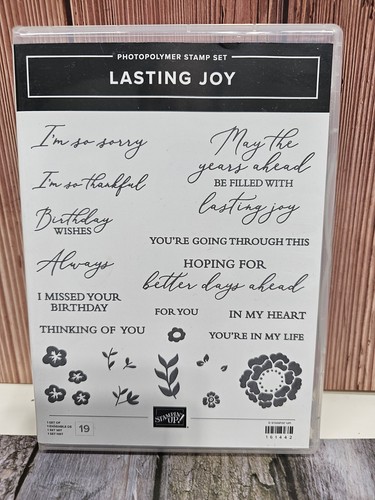 PHOTOPOLYMER STAMP SET
LASTING JOY
I'm so sorry
I'm so thankful
Birthday
WISHES
Always
I MISSED YOUR
BIRTHDAY
THINKING OF YOU
May the
years ahead
BE FILLED WITH
lasting joy
YOU'RE GOING THROUGH THIS
HOPING FOR
better days ahead
FOR YOU
IN MY HEART
YOU'RE IN MY LIFE
19
STAMPIN' UP!
© STAMPIN' UP!
161442